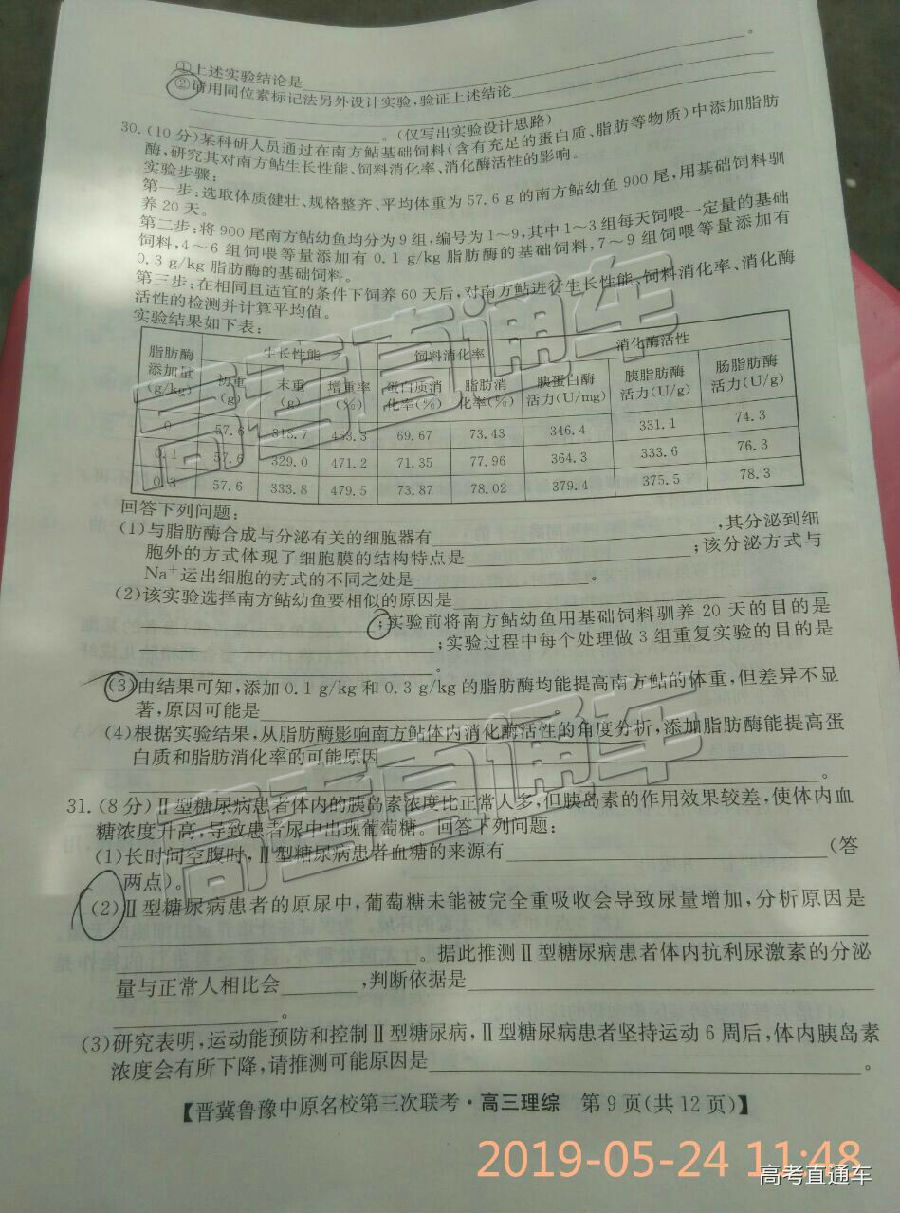 ①上述实验结论是。
②请用同位素标记法另外设计实验,验证上述结论
。(仅写出实验设计思路)
30.(10分)某科研人员通过在南方鲇基础饲料(含有充足的蛋白质、脂肪等物质)中添加脂肪
酶,研究其对南方鲇生长性能、饲料消化率、消化酶活性的影响。
实验步骤:
第一步:选取体质健壮、规格整齐、平均体重为57.6 g的南方鲇幼鱼900尾,用基础饲料驯
养20天。
第二步:将900尾南方鲇幼鱼均分为9组,编号为1~9,其中1~3组每天饲喂一定量的基础
饲料,4~6组饲喂等量添加有0.1 g/kg脂肪酶的基础饲料,7~9组饲喂等量添加有
0.3 g/kg脂肪酶的基础饲料。
第三步:在相同且适宜的条件下饲养60天后,对南方鲇进行生长性能、饲料消化率、消化酶
活性的检测并计算平均值。
实验结果如下表:
脂肪酶添加量(g/kg) 生长性能 饲料消化率 消化酶活性
初重(g) 末重(g) 增重率(%) 蛋白质消化率(%) 脂肪消化率(%) 胰蛋白酶活力(U/mg) 胰脂肪酶活力(U/g) 肠脂肪酶活力(U/g)
0 57.6 69.67 73.43 346.4 331.1 74.3
57.6 329.0 471.2 71.35 77.96 364.3 333.6 76.3
57.6 333.8 479.5 73.87 78.02 379.4 375.5 78.3
回答下列问题:
(1)与脂肪酶合成与分泌有关的细胞器有,其分泌到细
胞外的方式体现了细胞膜的结构特点是;该分泌方式与
Na⁺运出细胞的方式的不同之处是。
(2)该实验选择南方鲇幼鱼要相似的原因是
;实验前将南方鲇幼鱼用基础饲料驯养20天的目的是
;实验过程中每个处理做3组重复实验的目的是
。
(3)由结果可知,添加0.1 g/kg和0.3 g/kg的脂肪酶均能提高南方鲇的体重,但差异不显
著,原因可能是
(4)根据实验结果,从脂肪酶影响南方鲇体内消化酶活性的角度分析,添加脂肪酶能提高蛋
白质和脂肪消化率的可能原因
。
31.(8分)Ⅱ型糖尿病患者体内的胰岛素浓度比正常人多,但胰岛素的作用效果较差,使体内血
糖浓度升高,导致患者尿中出现葡萄糖。回答下列问题:
(1)长时间空腹时,Ⅱ型糖尿病患者血糖的来源有(答
两点)。
(2)Ⅱ型糖尿病患者的原尿中,葡萄糖未能被完全重吸收会导致尿量增加,分析原因是
。据此推测Ⅱ型糖尿病患者体内抗利尿激素的分泌
量与正常人相比会,判断依据是
。
(3)研究表明,运动能预防和控制Ⅱ型糖尿病,Ⅱ型糖尿病患者坚持运动6周后,体内胰岛素
浓度会有所下降,请推测可能原因是。
【晋冀鲁豫中原名校第三次联考·高三理综 第9页(共12页)】
2019-05-24 11:48
高考直通车
高考直通车
高考直通车